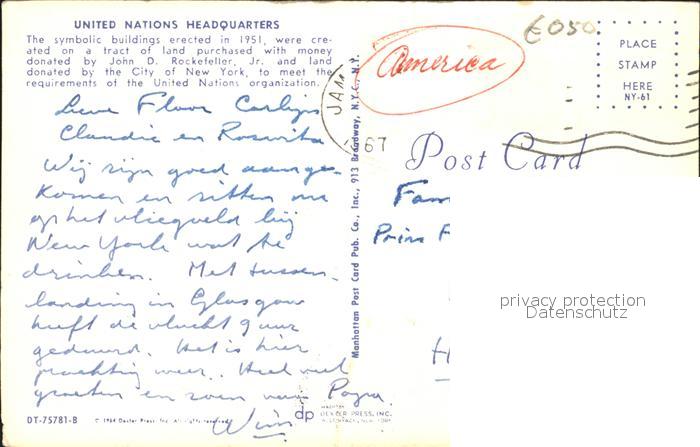 UNITED NATIONS HEADQUARTERS
The symbolic buildings erected in 1951, were cre-
ated on a tract of land purchased with money
donated by John D. Rockefeller, Jr. and land
donated by the City of New York, to meet the
requirements of the United Nations organization.
Lieve Floor Carlijn
Claudie en Roswitha
Wij zijn goed aange-
komen en zitten nu
op het vliegveld bij
New York wat te
drinken. Met tussen-
landing in Glasgow
heeft de vlucht 9 uur
geduurd. Het is hier
prachtig weer. Heel veel
groeten en zoen van Papa
Wim
DT-75781-B
© 1964 Dexter Press Inc. All rights reserved
dp
DEXTER PRESS, INC.
Manhattan Post Card Pub. Co., Inc., 913 Broadway, N.Y.C., N.Y.
America
€050
JAN
67
PLACE
STAMP
HERE
NY-61
Post Card
Fam
Prins F
H
privacy protection
Datenschutz